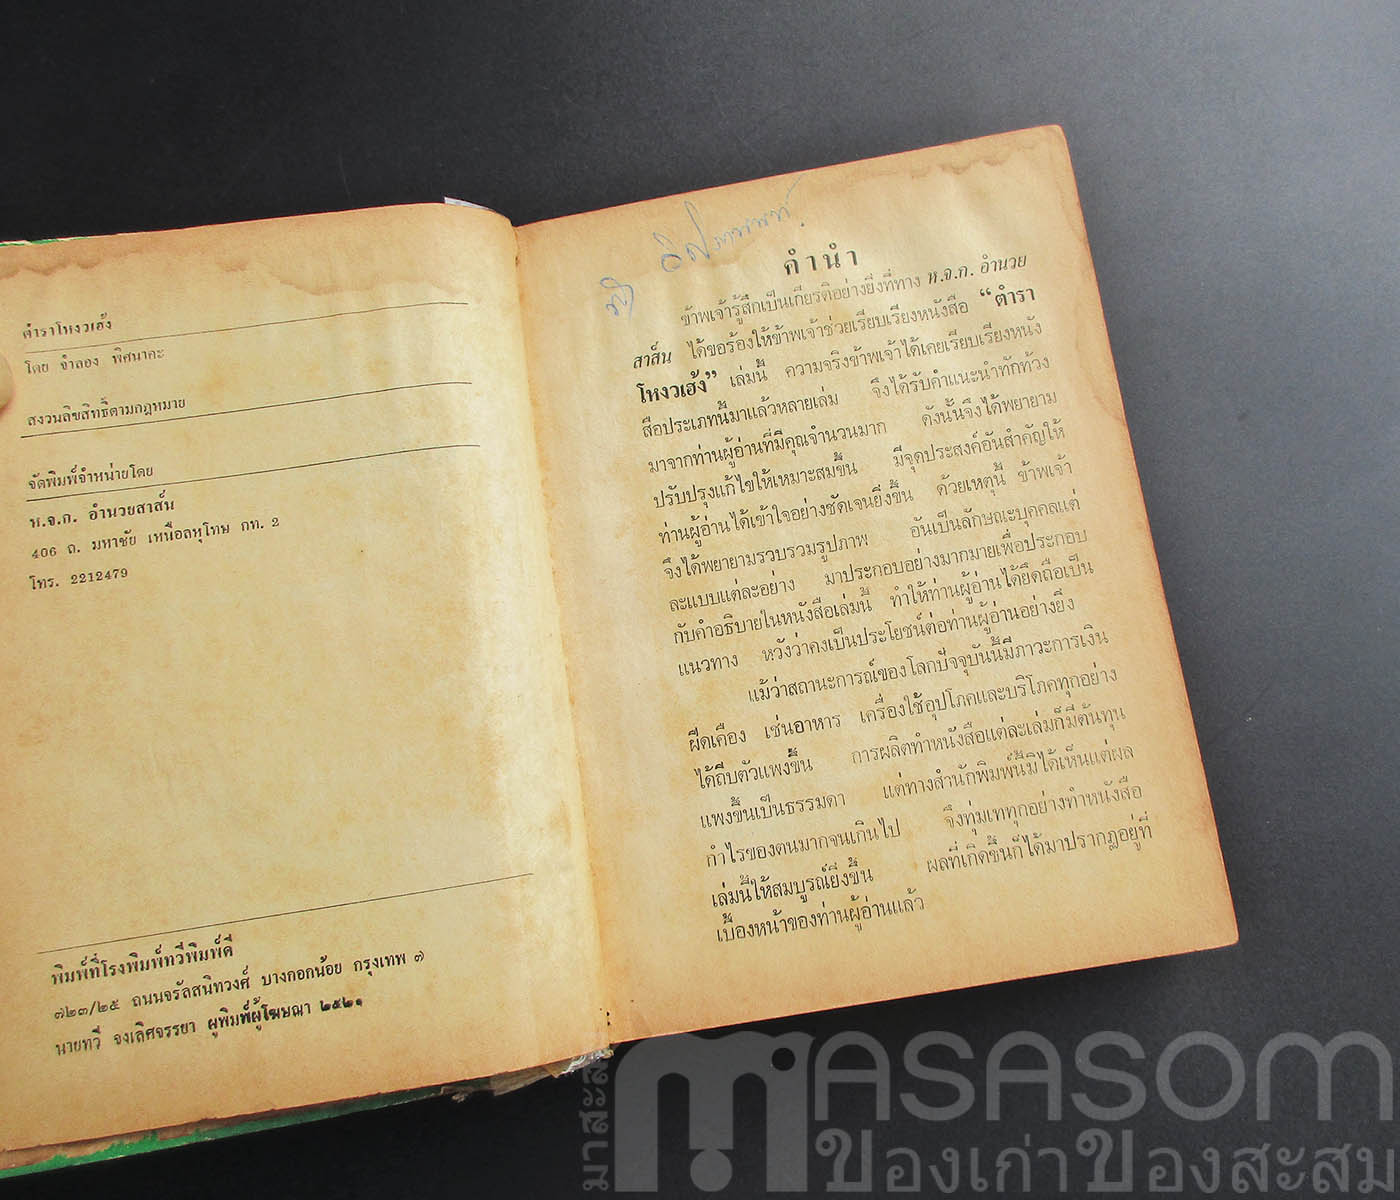 ตำราโหงวเฮ้ง
โดย จำลอง พิศนาคะ
สงวนลิขสิทธิ์ตามกฎหมาย
จัดพิมพ์จำหน่ายโดย
ห.จ.ก. อำนวยสาส์น
406 ถ. มหาชัย เหนือลหุโทษ กท. 2
โทร. 2212479
พิมพ์ที่โรงพิมพ์ทวีพิมพ์ดี
๗๒๓/๒๕ ถนนจรัลสนิทวงศ์ บางกอกน้อย กรุงเทพ ๗
นายทวี จงเลิศจรรยา ผู้พิมพ์ผู้โฆษณา ๒๕๒๑
คำนำ
ข้าพเจ้ารู้สึกเป็นเกียรติอย่างยิ่งที่ทาง ห.จ.ก. อำนวย
สาส็น ได้ขอร้องให้ข้าพเจ้าช่วยเรียบเรียงหนังสือ “ตำรา
โหงวเฮ้ง” เล่มนี้ ความจริงข้าพเจ้าได้เคยเรียบเรียงหนัง
สือประเภทนี้มาแล้วหลายเล่ม จึงได้รับคำแนะนำทักท้วง
มาจากท่านผู้อ่านที่มีคุณจำนวนมาก ดังนั้นจึงได้พยายาม
ปรับปรุงแก้ไขให้เหมาะสมขึ้น มีจุดประสงค์อันสำคัญให้
ท่านผู้อ่านได้เข้าใจอย่างชัดเจนยิ่งขึ้น ด้วยเหตุนี้ ข้าพเจ้า
จึงได้พยายามรวบรวมรูปภาพ อันเป็นลักษณะบุคคลแต่
ละแบบแต่ละอย่าง มาประกอบอย่างมากมายเพื่อประกอบ
กับคำอธิบายในหนังสือเล่มนี้ ทำให้ท่านผู้อ่านได้ยึดถือเป็น
แนวทาง หวังว่าคงเป็นประโยชน์ต่อท่านผู้อ่านอย่างยิ่ง
แม้ว่าสถานะการณ์ของโลกปัจจุบันนี้มีภาวะการเงิน
ฝืดเคือง เช่นอาหาร เครื่องใช้อุปโภคและบริโภคทุกอย่าง
ได้ถีบตัวแพงขึ้น การผลิตทำหนังสือแต่ละเล่มก็มีต้นทุน
แพงขึ้นเป็นธรรมดา แต่ทางสำนักพิมพ์นี้มิได้เห็นแต่ผล
กำไรของตนมากจนเกินไป จึงทุ่มเททุกอย่างทำหนังสือ
เล่มนี้ให้สมบูรณ์ยิ่งขึ้น ผลที่เกิดขึ้นก็ได้มาปรากฏอยู่ที่
เบื้องหน้าของท่านผู้อ่านแล้ว
มาสะสม
MASASOM
ของเก่าของสะสม